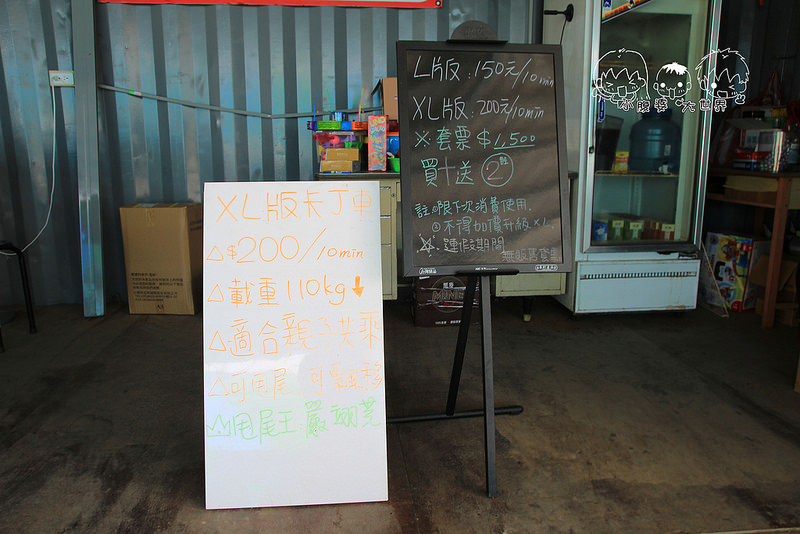 XL版卡丁車
△$200/10min
△載重110kg↓
△適合親子共乘
△可甩尾、可愛重移
甩尾王:嚴翊莞
L版:150元/10min
XL版:200元/10min
※套票$1,500
買十送②註
註①限下次消費使用.
②不得加價升級XL.
☆連假期間
無販賣套票
小腹婆大世界